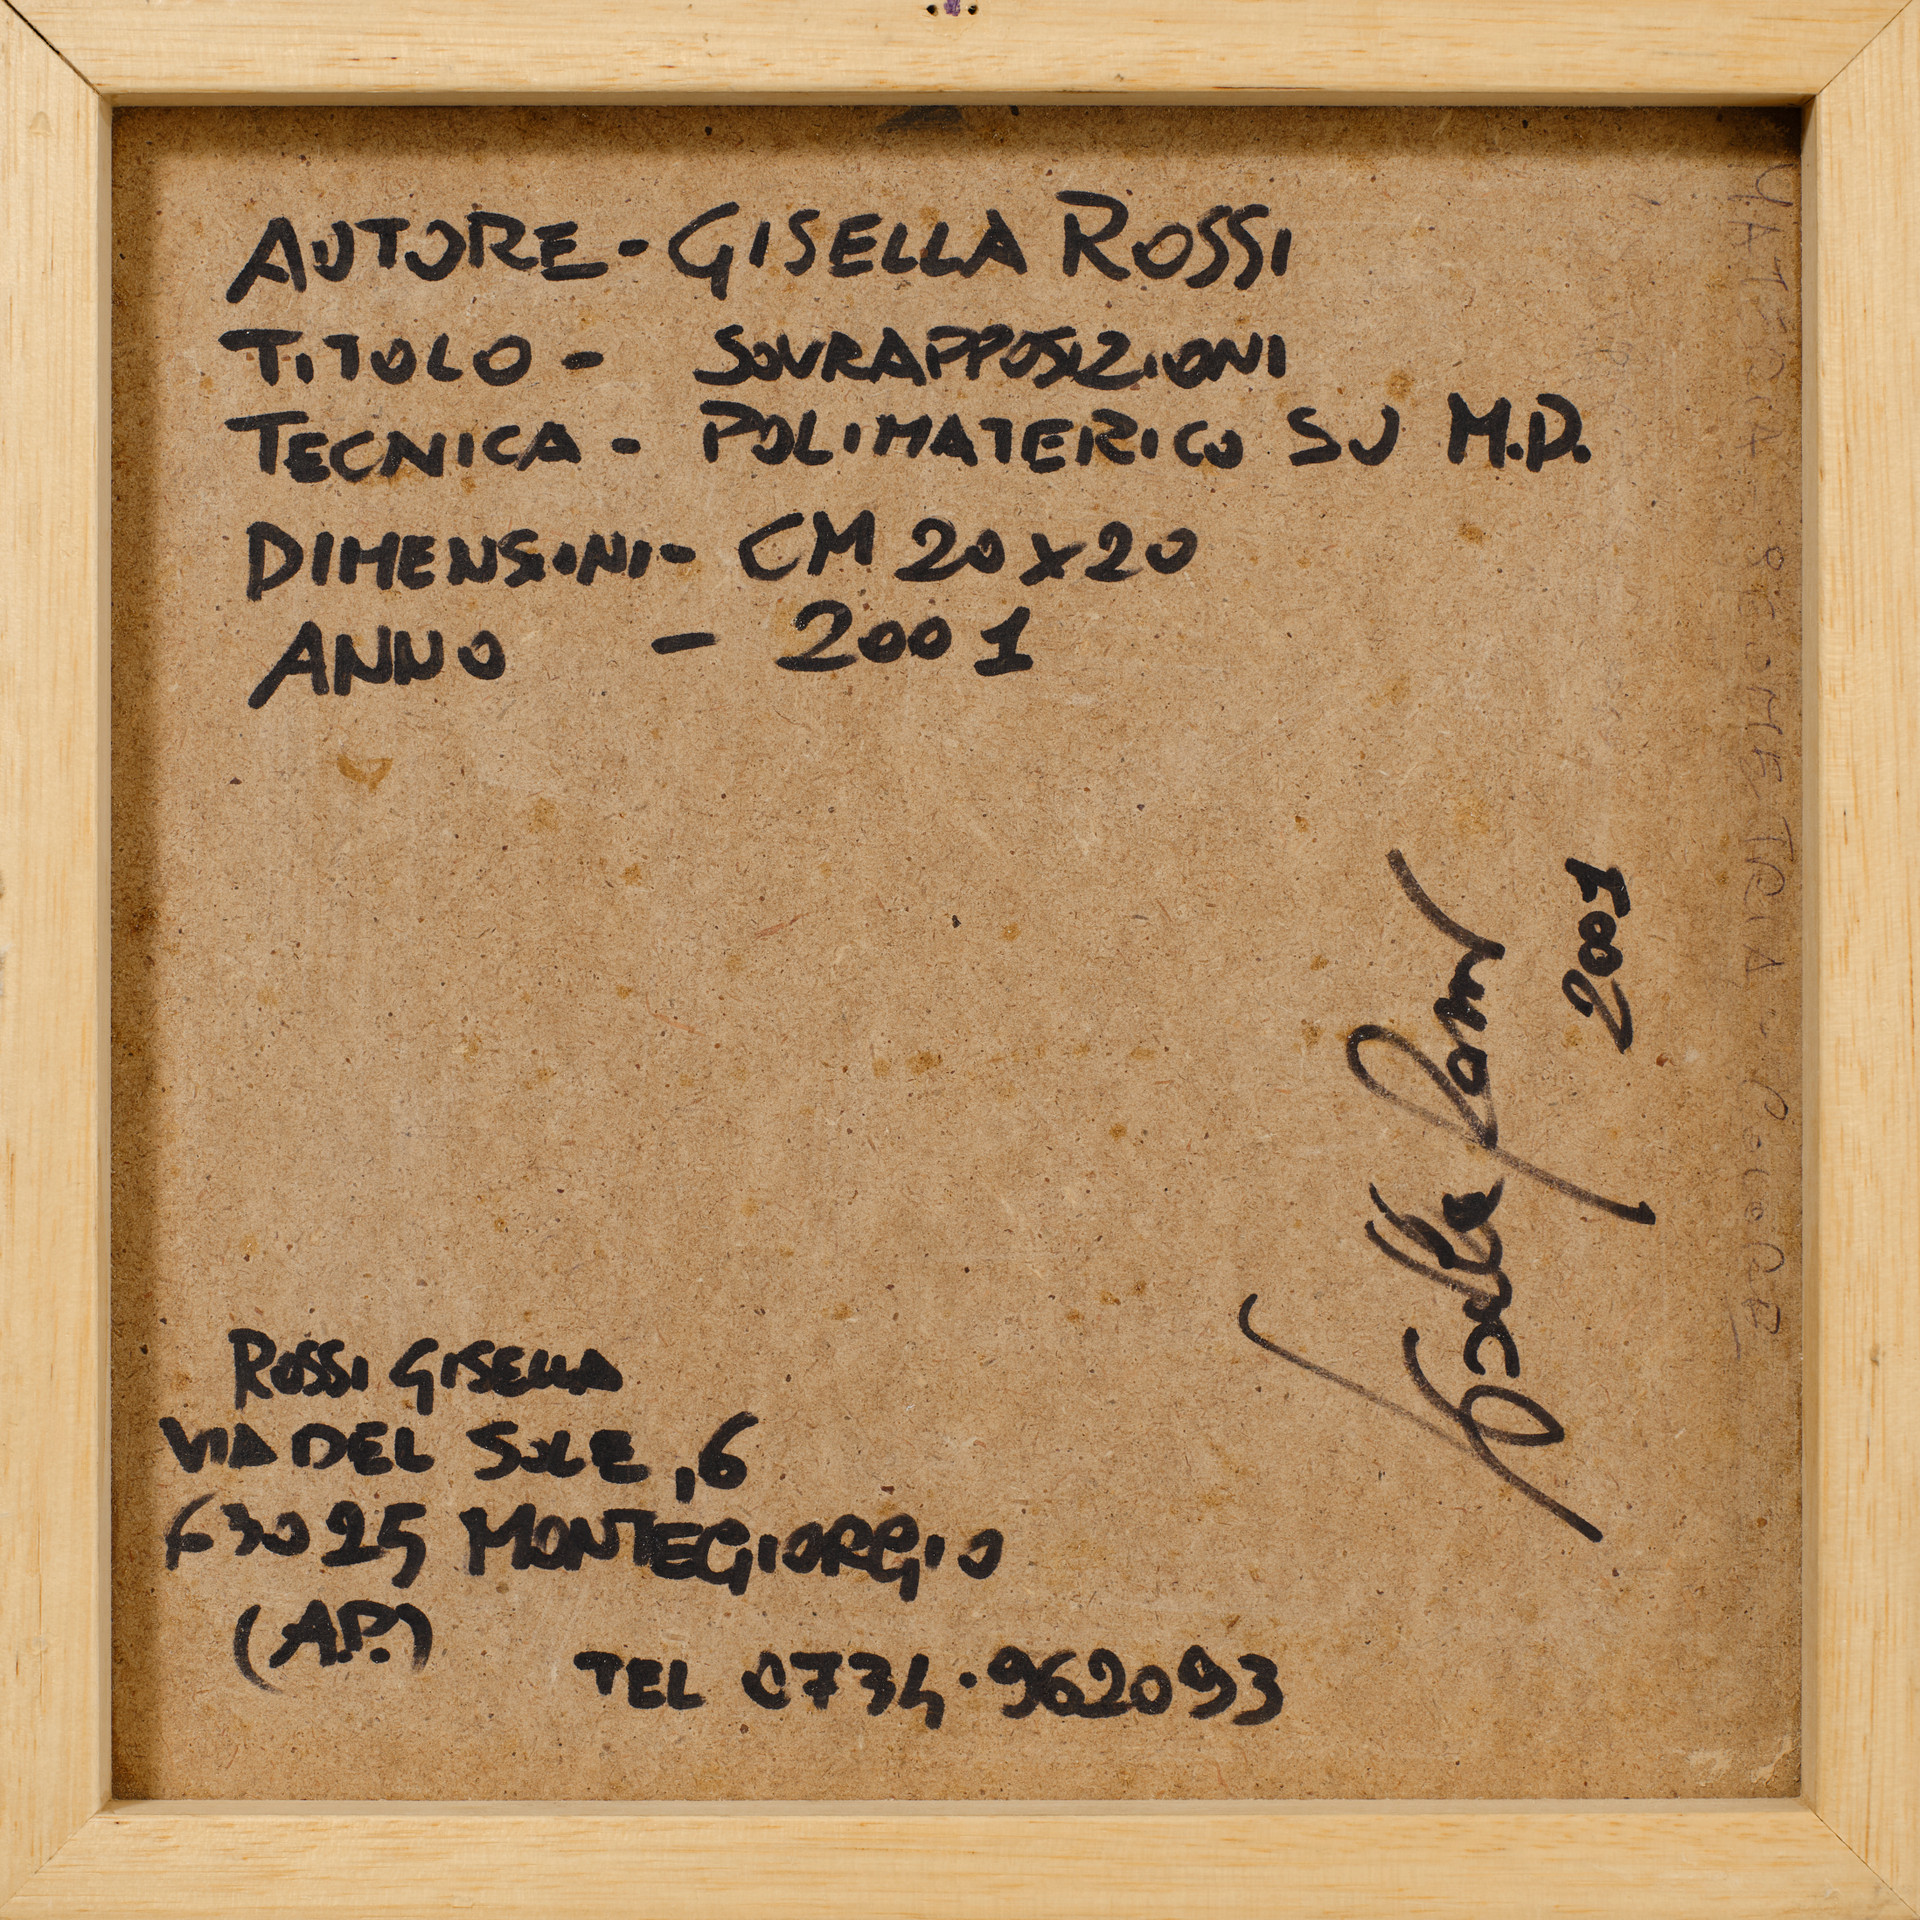 AUTORE - GISELLA ROSSI
TITOLO - SOVRAPPOSIZIONI
TECNICA - POLIMATERICO SU M.D.
DIMENSIONI - CM 20x20
ANNO - 2001
Gisella Rossi
2001
ROSSI GISELLA
VIA DEL SOLE, 6
63025 MONTEGIORGIO
(A.P.)
TEL 0734.962093
MATERIA - GEOMETRIA - COLORE